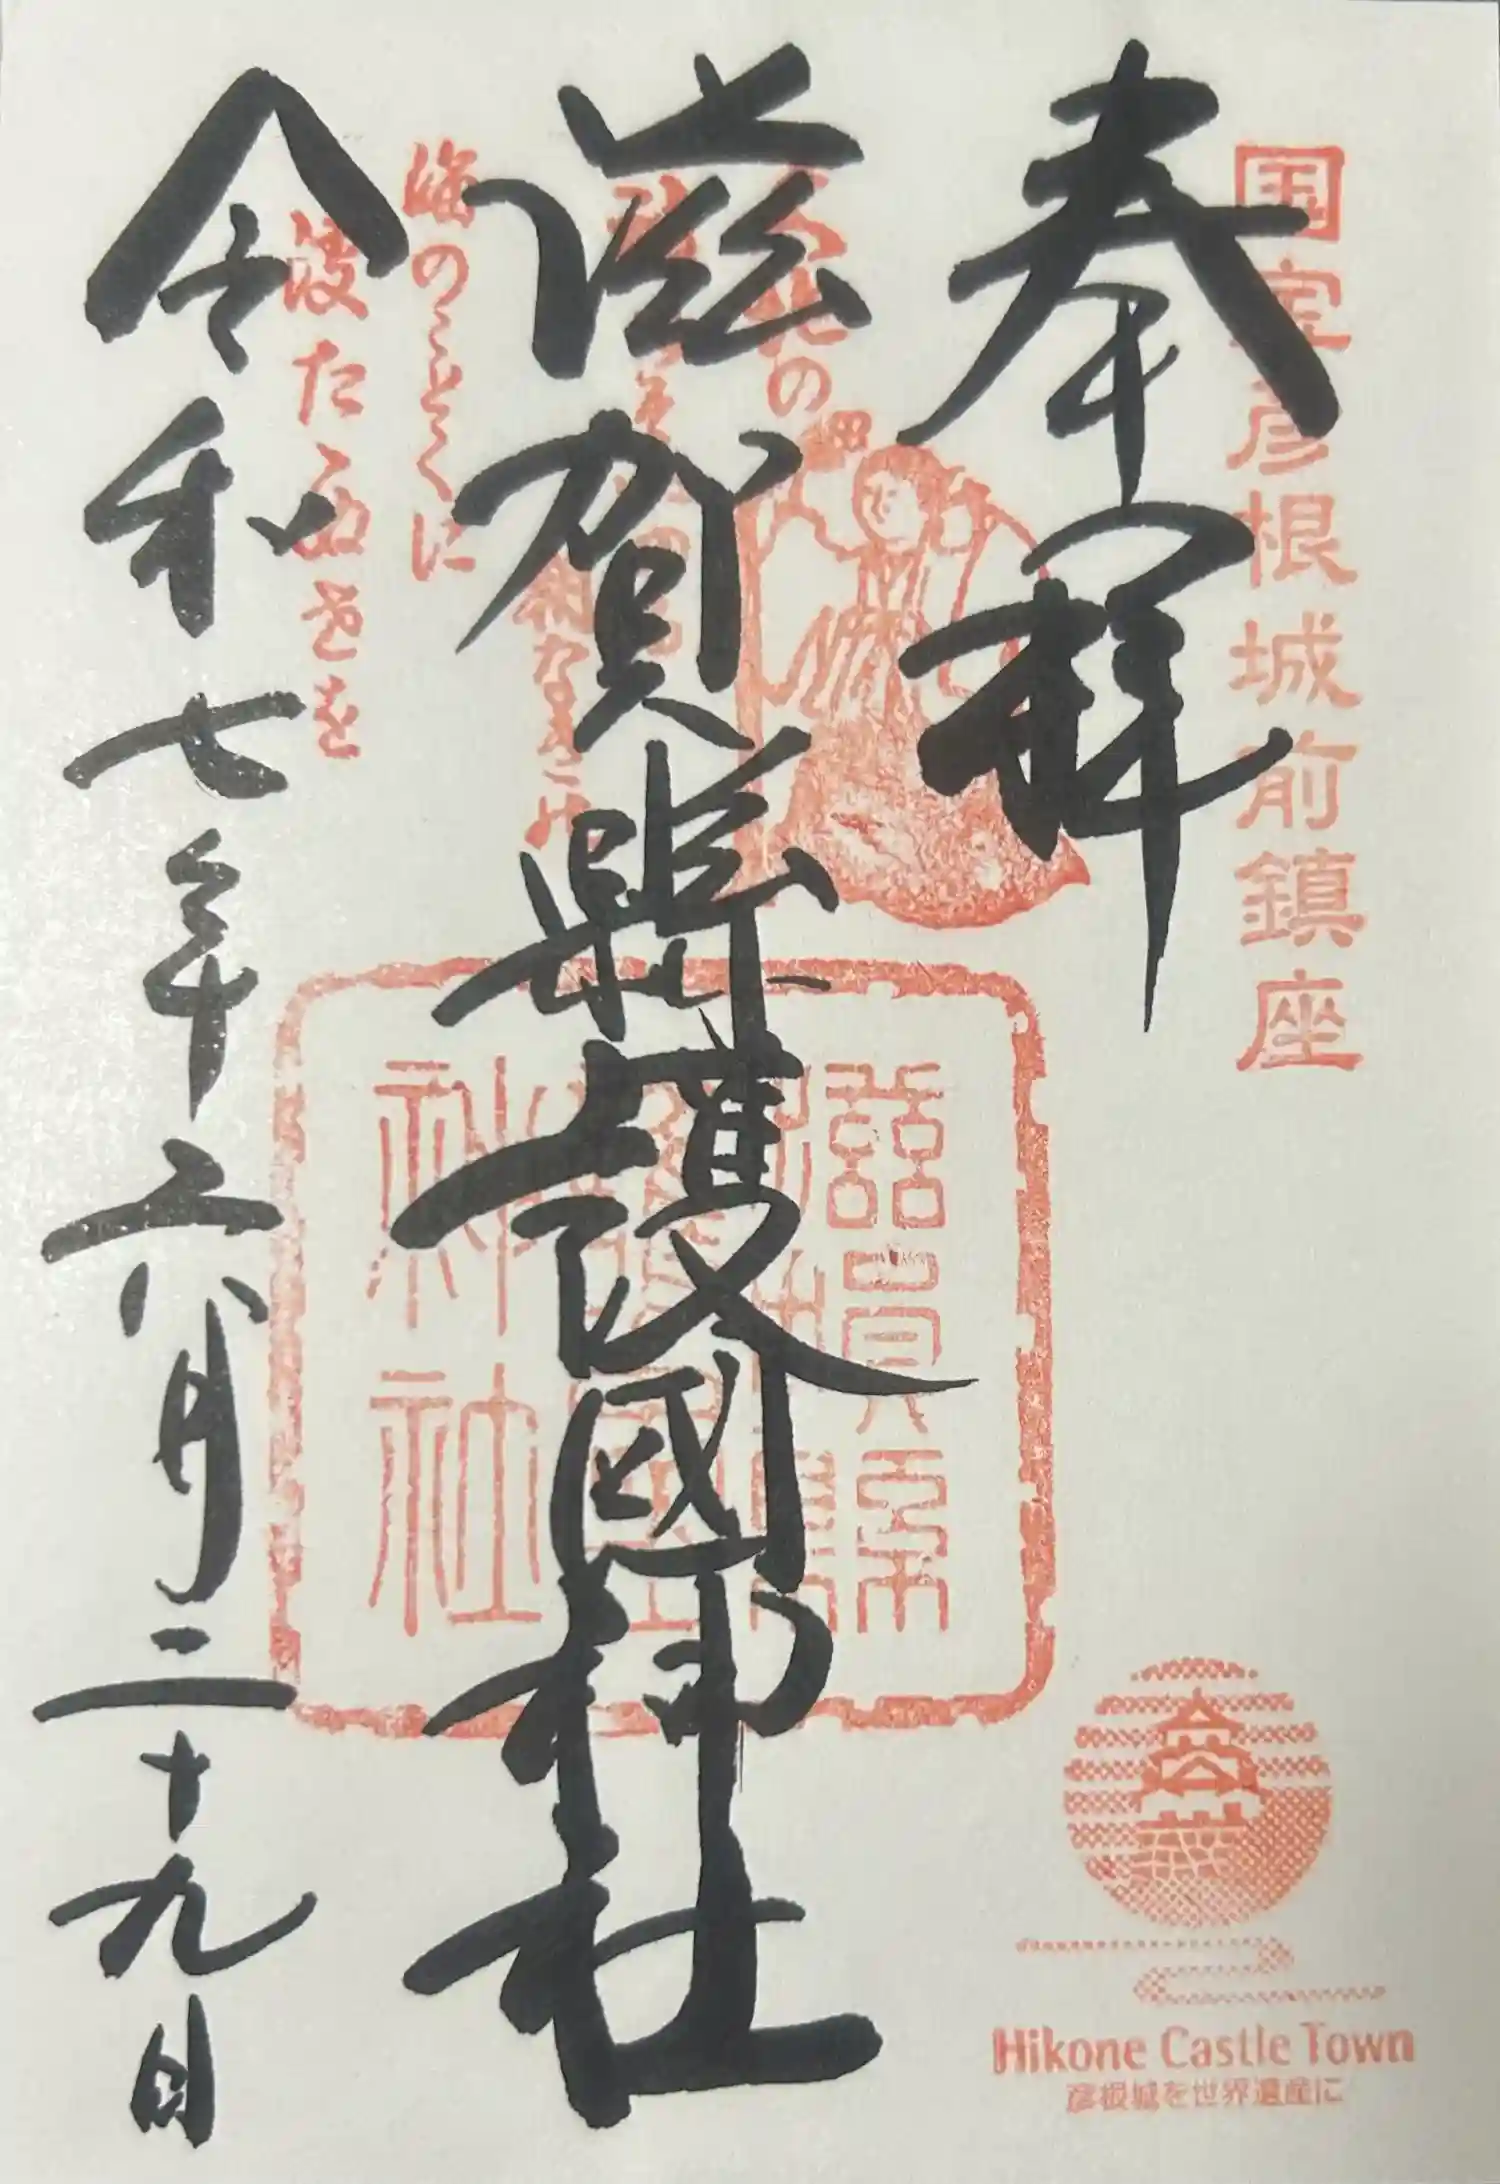 国宝彦根城前鎮座
奉拝
滋賀縣護國神社
令和七年六月二十九日
海のことくに
波たゝぬ世を
滋賀県
護国
神社
Hikone Castle Town
彦根城を世界遺産に